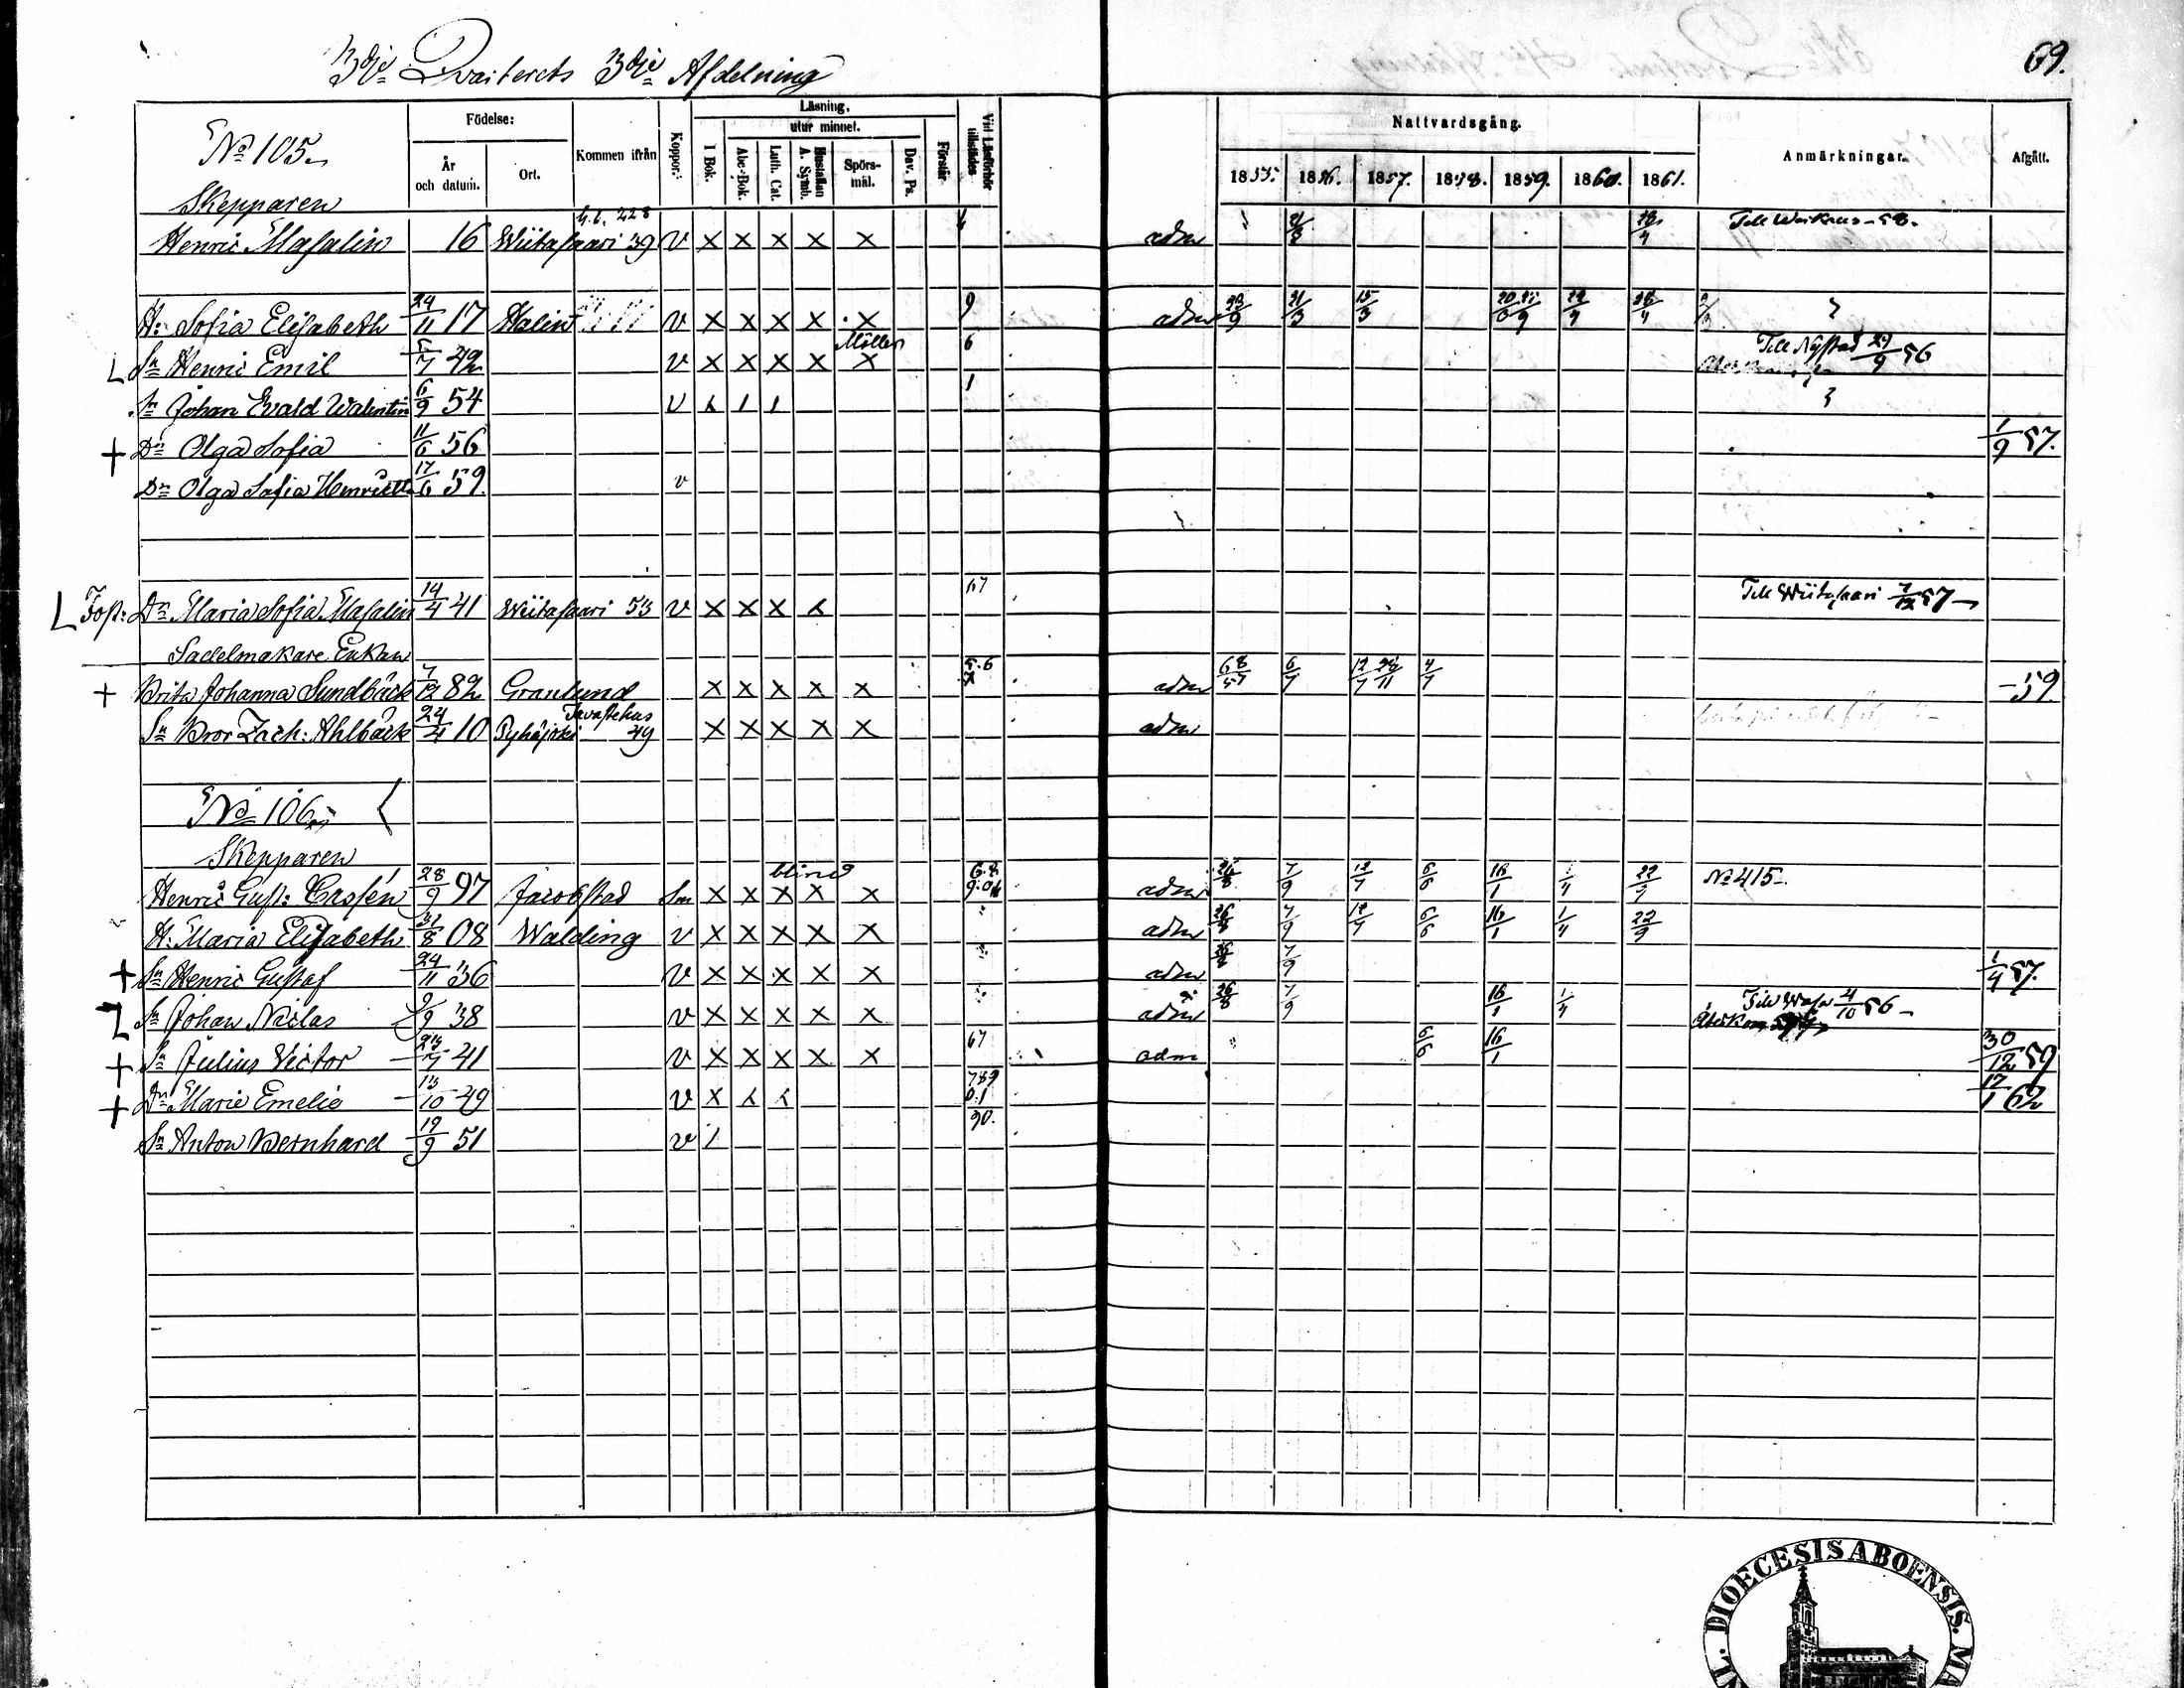 3dje Qvarterets 3dje Afdelning
69.
Födelse: Läsning. Nattvardsgång.
utur minnet.
No 105 År och datum. Ort. Kommen ifrån Koppor. I Bok. Abc-Bok. Luth. Cat. Hustaflan A. Symb. Spörsmål. Dav. Ps. Förstår Vid Läsförhör tillstädes 1855. 1856. 1857. 1858. 1859. 1860. 1861. Anmärkningar. Afgått.
Skepparen
Henric Masalin 16 Wiitasaari 39 v × × × × × adm 21/3
H: Sofia Elisabeth 24/11 17 Malin v × × × × × 9 adm 23/9 21/3 15/3
L Sn Henric Emil 5/7 42 v × × × × × 6 Till Nystad 29/9 56
Sn Johan Evald Walentin 6/9 54 v 1
+ Dr Olga Sofia 11/6 56 1/9 57.
Dr Olga Sofia Henriette 17/6 59. v
L Fost: Dr Maria Sofia Masalin 14/4 41 Wiitasaari 53 v × × × 67 Till Wiitasaari 7/12 57
Sadelmakare Enkan
+ Brita Johanna Sundbäck 7/12 82 Granlund × × × × × adm 6/7 4/7 - 59.
Sn Bror Zach: Ahlbäck 24/4 10 Pyhäjoki Tavastehus 49 × × × × × adm
No 106
Skepparen
Henric Gust: Cassén 28/9 97 Jacobstad × × × × × blind adm 26/8 7/9 12/7 6/6 16/1 1/4 22/9 No 415
H: Maria Elisabeth 31/8 08 Walding v × × × × × adm 26/8 7/9 12/7 6/6 16/1 1/4 22/9
+ Sn Henric Gustaf 24/11 36 v × × × × × adm 26/8 7/9 1/4 57.
Sn Johan Niclas 9/9 38 v × × × × × adm 26/8 7/9 16/1 1/4 Till Wasa 4/10 56
+ Sn Julius Victor 41 v × × × × × 67 adm 6/6 16/1 30/12 59
+ Dr Marie Emelie 13/10 49 v × 789 17/1 62
Sn Anton Bernhard 19/9 51 v 90.
DIOECESIS ABOENSIS.